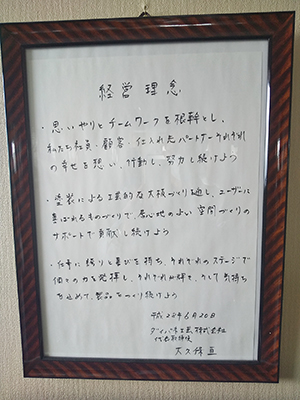 経営理念
・思いやりとチームワークを根幹とし、
私たち社員・顧客・仕入れ先パートナーそれぞれ
の幸せを想い、行動し、努力し続けよう
・塗装による工業的な大板づくりを通し、ユーザーに
喜ばれるものづくりで、居心地のよい空間づくりの
サポートで貢献し続けよう
・仕事に誇りと喜びを持ち、それぞれのステージで
個々の力を発揮し、それぞれが輝き、そして気持ち
を込めて、製品をつくり続けよう
平成28年6月20日
ダイパネ工業株式会社
代表取締役
大久保 亘